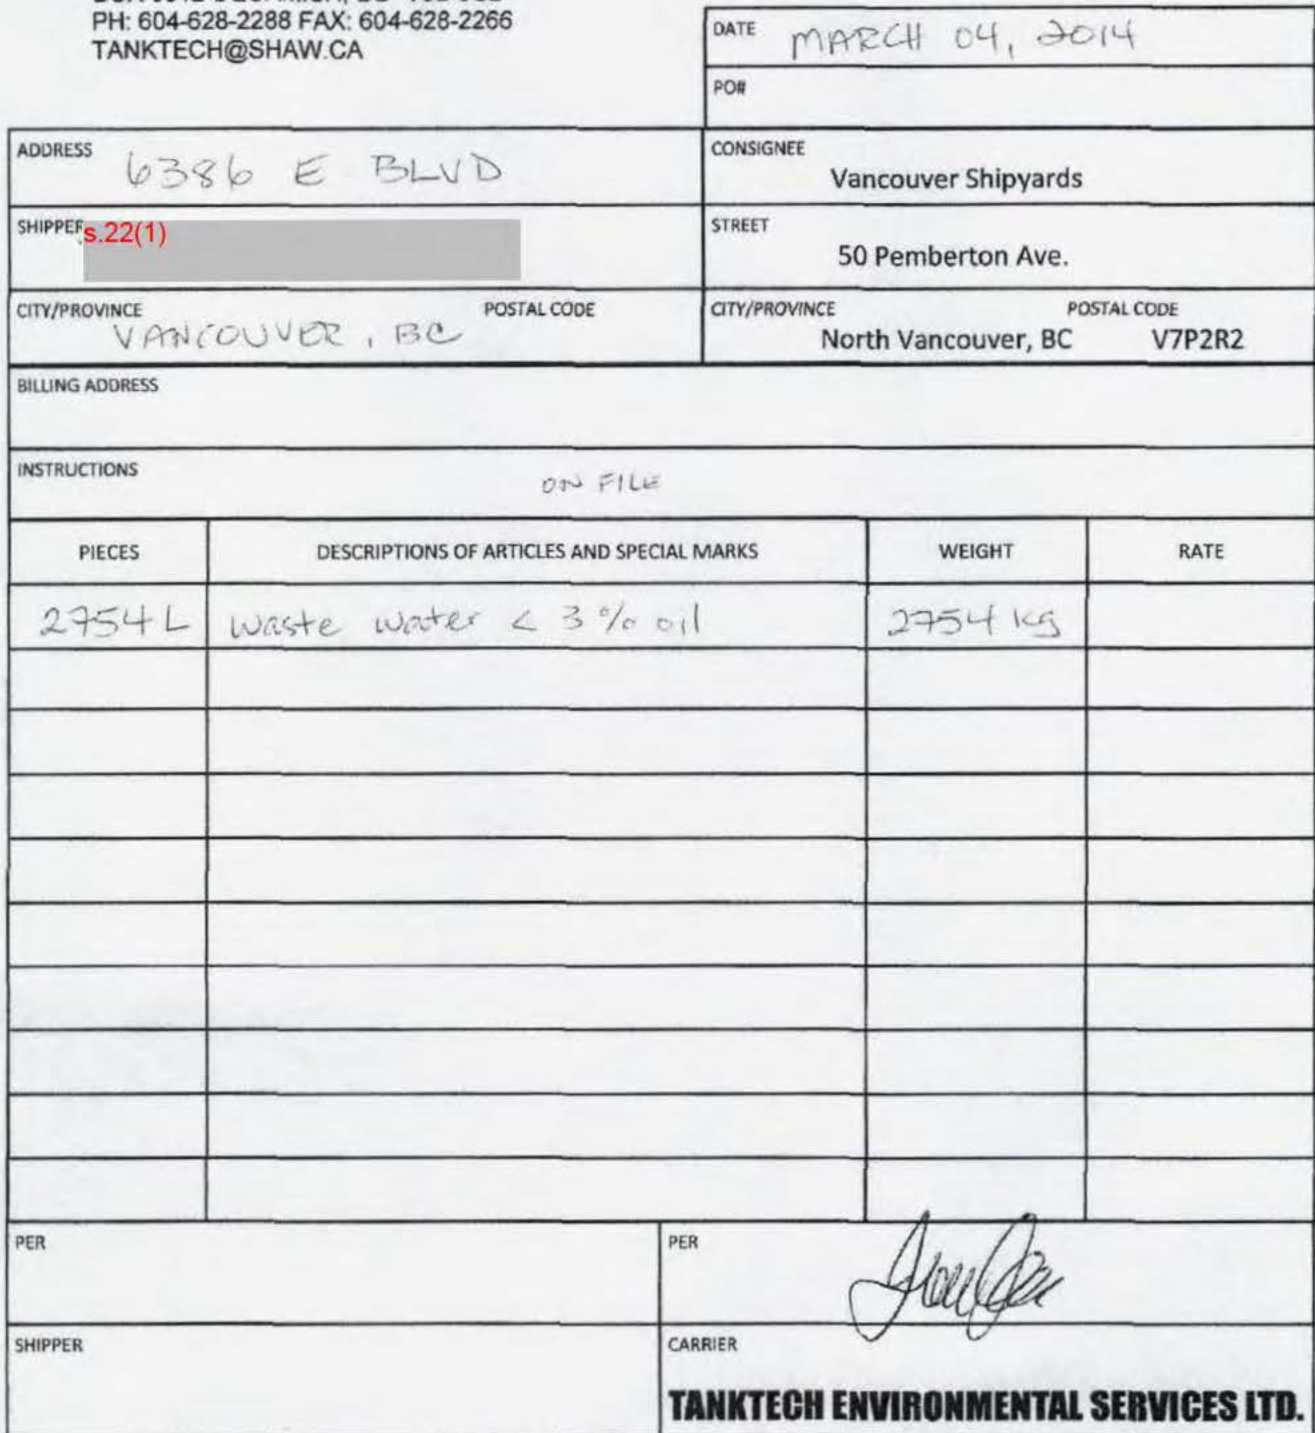 PH: 604-628-2288 FAX: 604-628-2266
TANKTECH@SHAW.CA
DATE MARCH 04, 2014
PO#
ADDRESS 6386 E BLVD
CONSIGNEE
Vancouver Shipyards
SHIPPER s.22(1)
STREET
50 Pemberton Ave.
CITY/PROVINCE POSTAL CODE
VANCOUVER, BC
CITY/PROVINCE POSTAL CODE
North Vancouver, BC V7P2R2
BILLING ADDRESS
INSTRUCTIONS
ON FILE
PIECES DESCRIPTIONS OF ARTICLES AND SPECIAL MARKS WEIGHT RATE
2754 L waste water < 3% oil 2754 kg
PER
PER
SHIPPER
CARRIER
TANKTECH ENVIRONMENTAL SERVICES LTD.